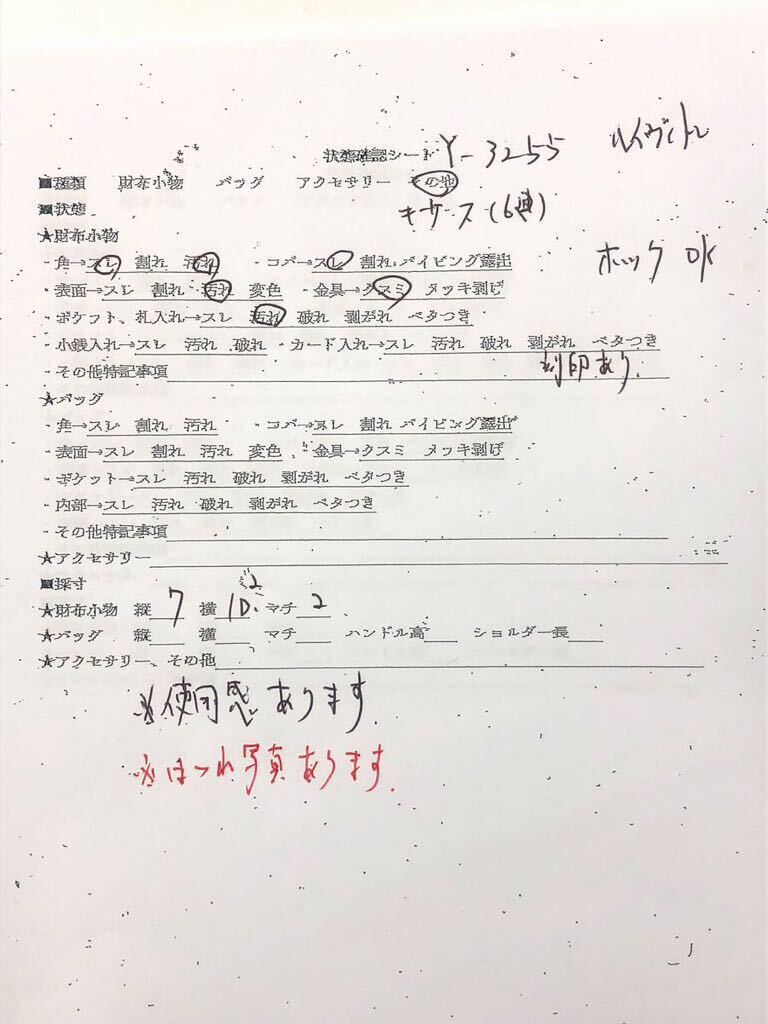 状態確認シート Y-3255 ルイヴィトン
■種類 財布小物 バッグ アクセサリー その他
キーケース(6連)
■状態
★財布小物
・角→スレ 割れ 汚れ ・コバ→スレ 割れ パイピング露出
ホック OK
・表面→スレ 割れ 汚れ 変色 ・金具→クスミ メッキ剥げ
・ポケット、札入れ→スレ 汚れ 破れ 剥がれ ベタつき
・小銭入れ→スレ 汚れ 破れ ・カード入れ→スレ 汚れ 破れ 剥がれ ベタつき
・その他特記事項 刻印あり
★バッグ
・角→スレ 割れ 汚れ ・コバ→スレ 割れ パイピング露出
・表面→スレ 割れ 汚れ 変色 ・金具→クスミ メッキ剥げ
・ポケット→スレ 汚れ 破れ 剥がれ ベタつき
・内部→スレ 汚れ 破れ 剥がれ ベタつき
・その他特記事項
★アクセサリー
■採寸
★財布小物 縦 7 横 10.2 マチ 2
★バッグ 縦 横 マチ ハンドル高 ショルダー長
★アクセサリー、その他
※使用感あります
※ほつれ写真あります.